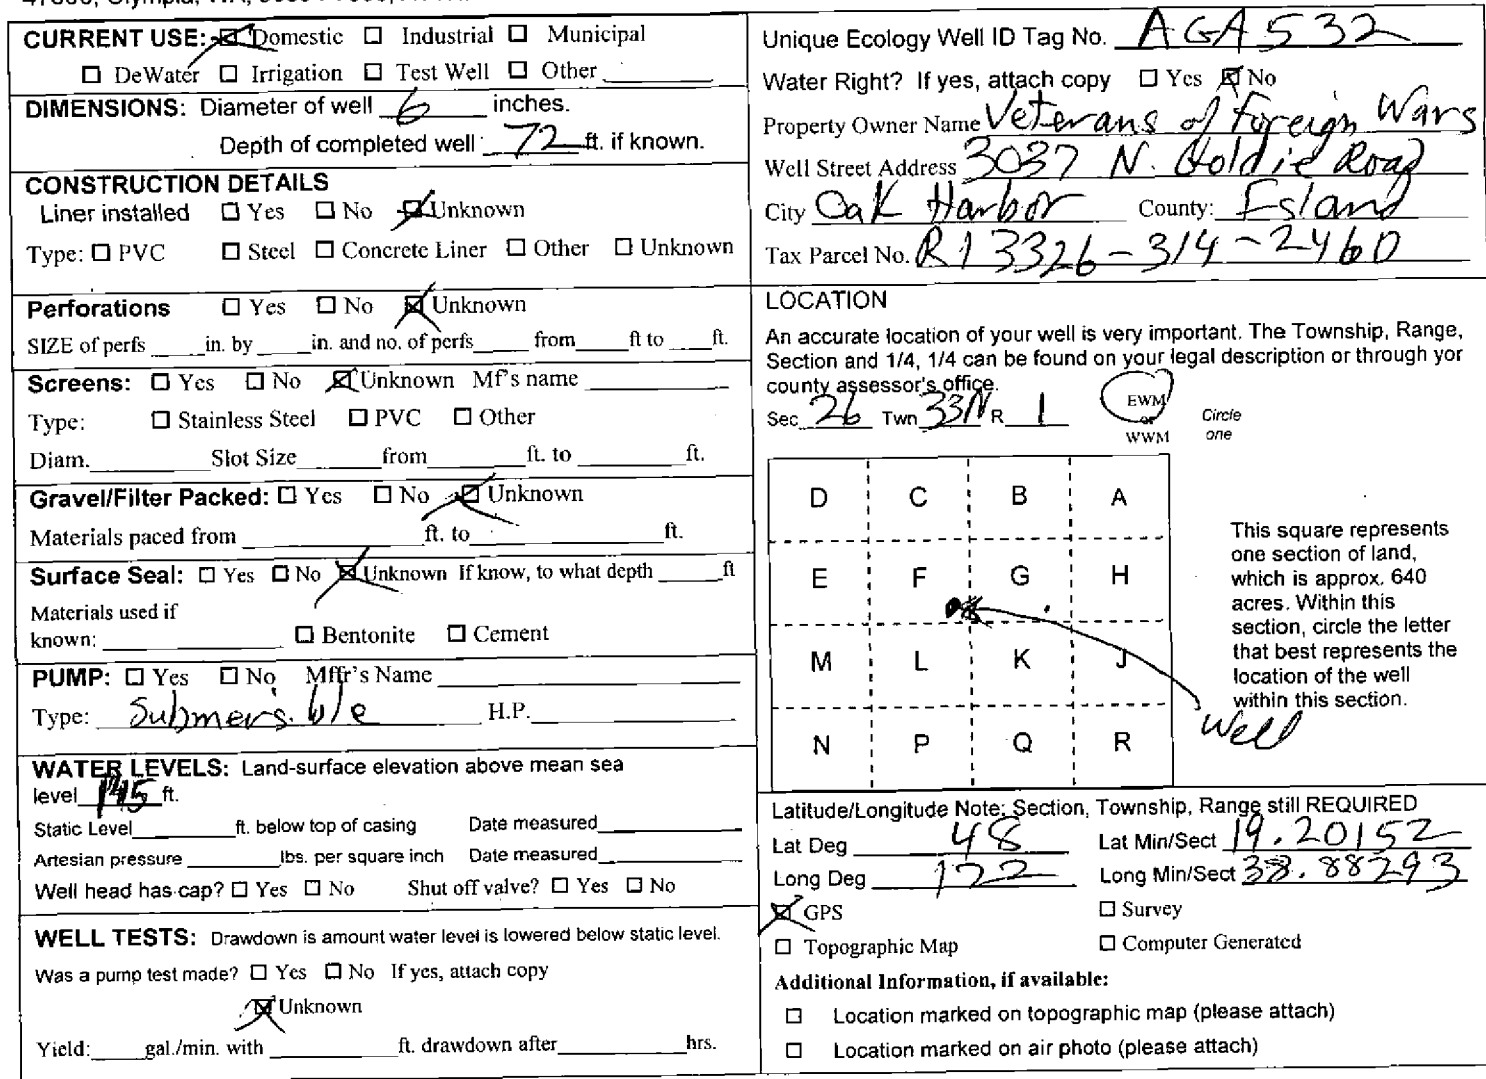 CURRENT USE: ☒ Domestic ☐ Industrial ☐ Municipal
☐ DeWater ☐ Irrigation ☐ Test Well ☐ Other ______
DIMENSIONS: Diameter of well 6 inches.
Depth of completed well 72 ft. if known.
CONSTRUCTION DETAILS
Liner installed ☐ Yes ☐ No ☒ Unknown
Type: ☐ PVC ☐ Steel ☐ Concrete Liner ☐ Other ☐ Unknown
Perforations ☐ Yes ☐ No ☒ Unknown
SIZE of perfs ____in. by ____in. and no. of perfs ____ from ____ft to ____ft.
Screens: ☐ Yes ☐ No ☒ Unknown Mf's name ______
Type: ☐ Stainless Steel ☐ PVC ☐ Other
Diam. ______ Slot Size ______ from ______ ft. to ______ ft.
Gravel/Filter Packed: ☐ Yes ☐ No ☒ Unknown
Materials paced from ______ ft. to ______ ft.
Surface Seal: ☐ Yes ☐ No ☒ Unknown If know, to what depth ____ft
Materials used if
known: ______ ☐ Bentonite ☐ Cement
PUMP: ☐ Yes ☐ No Mffr's Name ______
Type: Submersible H.P. ______
WATER LEVELS: Land-surface elevation above mean sea
level 145 ft.
Static Level ______ ft. below top of casing Date measured ______
Artesian pressure ______ lbs. per square inch Date measured ______
Well head has cap? ☐ Yes ☐ No Shut off valve? ☐ Yes ☐ No
WELL TESTS: Drawdown is amount water level is lowered below static level.
Was a pump test made? ☐ Yes ☐ No If yes, attach copy
☒ Unknown
Yield: ____ gal./min. with ______ ft. drawdown after ______ hrs.
Unique Ecology Well ID Tag No. AGA532
Water Right? If yes, attach copy ☐ Yes ☒ No
Property Owner Name Veterans of Foreign Wars
Well Street Address 3037 N. Goldie Road
City Oak Harbor County: Island
Tax Parcel No. R13326-314-2460
LOCATION
An accurate location of your well is very important. The Township, Range,
Section and 1/4, 1/4 can be found on your legal description or through yor
county assessor's office.
Sec 26 Twn 33N R 1 EWM
or Circle
WWM one
D C B A
E F G H
M L K J
N P Q R
This square represents
one section of land,
which is approx. 640
acres. Within this
section, circle the letter
that best represents the
location of the well
within this section.
Well
Latitude/Longitude Note: Section, Township, Range still REQUIRED
Lat Deg 48 Lat Min/Sect 19.20152
Long Deg 122 Long Min/Sect 38.88293
☒ GPS ☐ Survey
☐ Topographic Map ☐ Computer Generated
Additional Information, if available:
☐ Location marked on topographic map (please attach)
☐ Location marked on air photo (please attach)